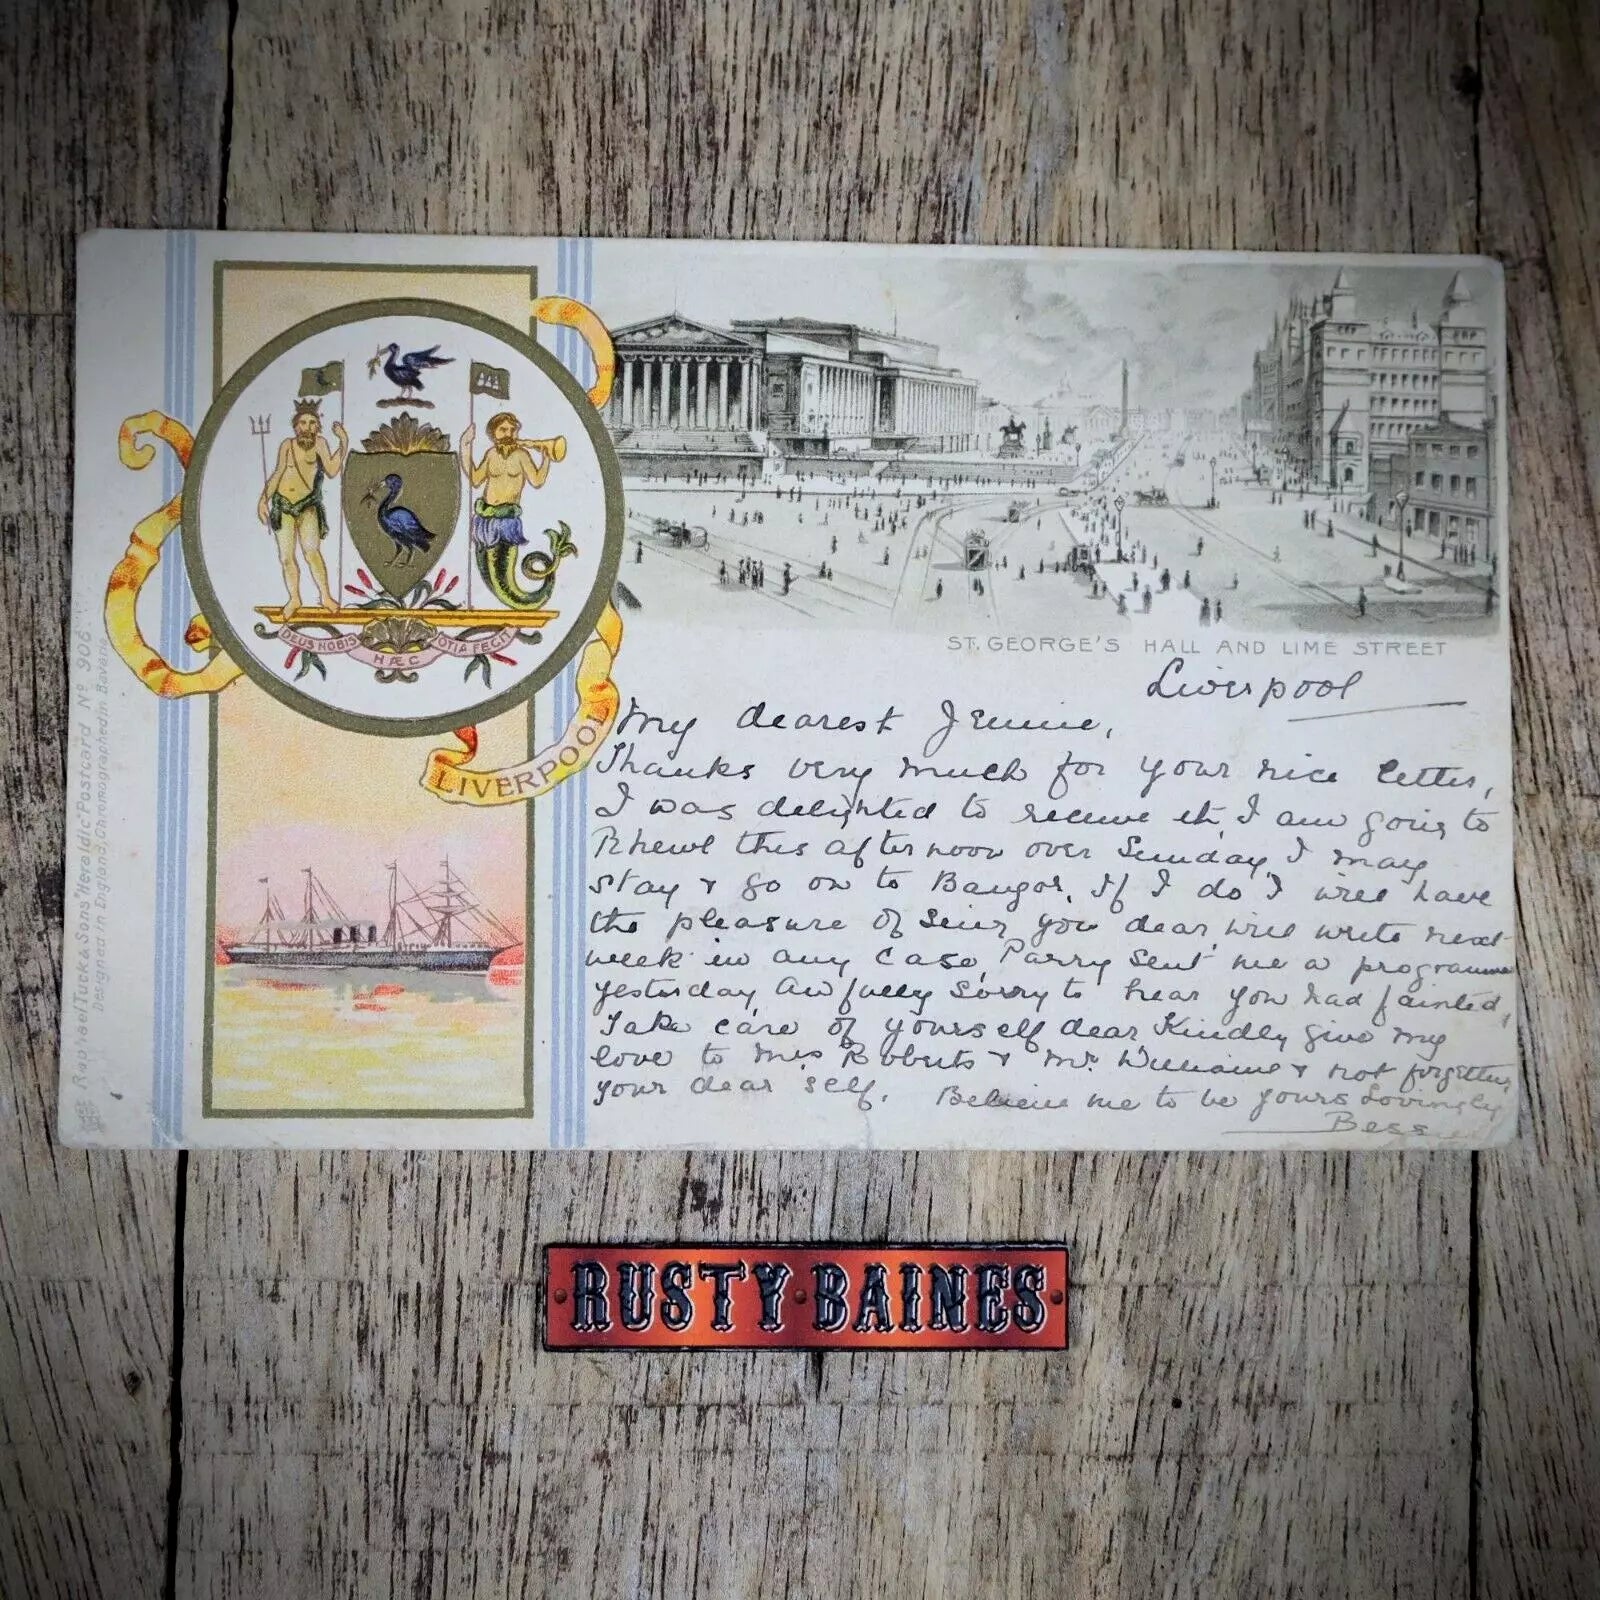 DEUS NOBIS HÆC OTIA FECIT
LIVERPOOL
Raphael Tuck & Sons' "Heraldic" Postcard Nº 906.
Designed in England, Chromographed in Bavaria
ST. GEORGE'S HALL AND LIME STREET
Liverpool
My dearest Jennie,
Thanks very much for your nice letter,
I was delighted to receive it, I am going to
Rhewl this afternoon over Sunday, I may
stay & go on to Bangor. If I do I will have
the pleasure of seeing you dear, will write next
week in any case, Parry sent me a programme
yesterday, Awfully sorry to hear you had fainted,
Take care of yourself dear, Kindly give my
love to Mrs Roberts & Mr. Williams & not forgetting
your dear self. Believe me to be yours Lovingly
Bessie
RUSTY BAINES